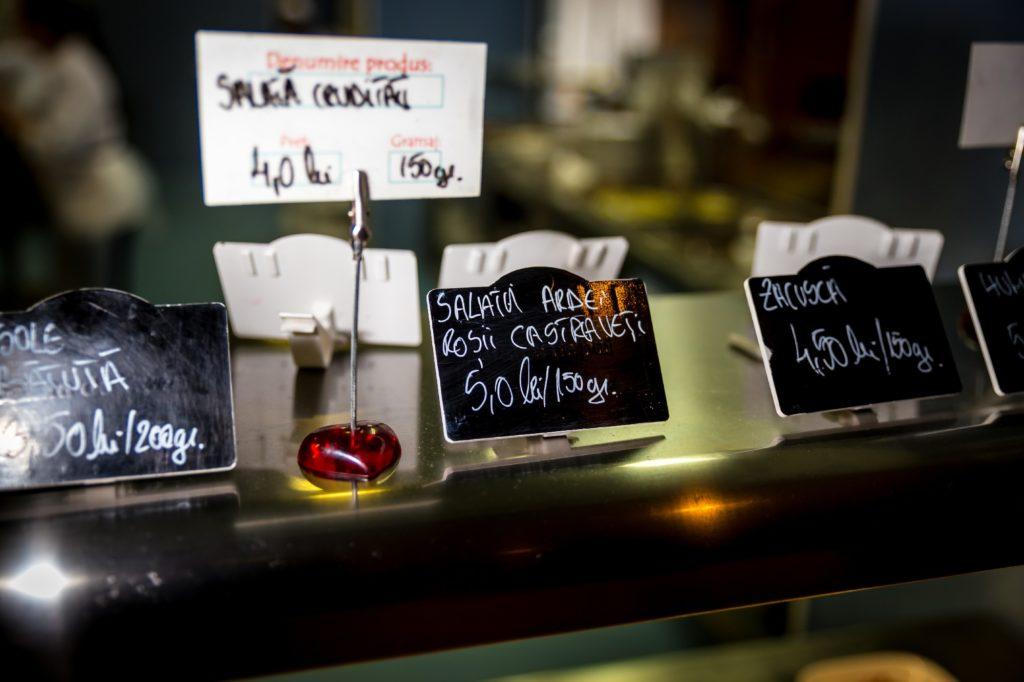 Denumire produs:
SALATĂ CRUDITĂȚI
Preț Gramaj
4,0 lei 150gr.
SOLE
BĂTUTĂ
3,50 lei/200gr.
SALATĂ ARDEI
ROSII CASTRAVEȚI
5,0 lei/150gr.
ZACUSCĂ
4,50 lei/150gr.